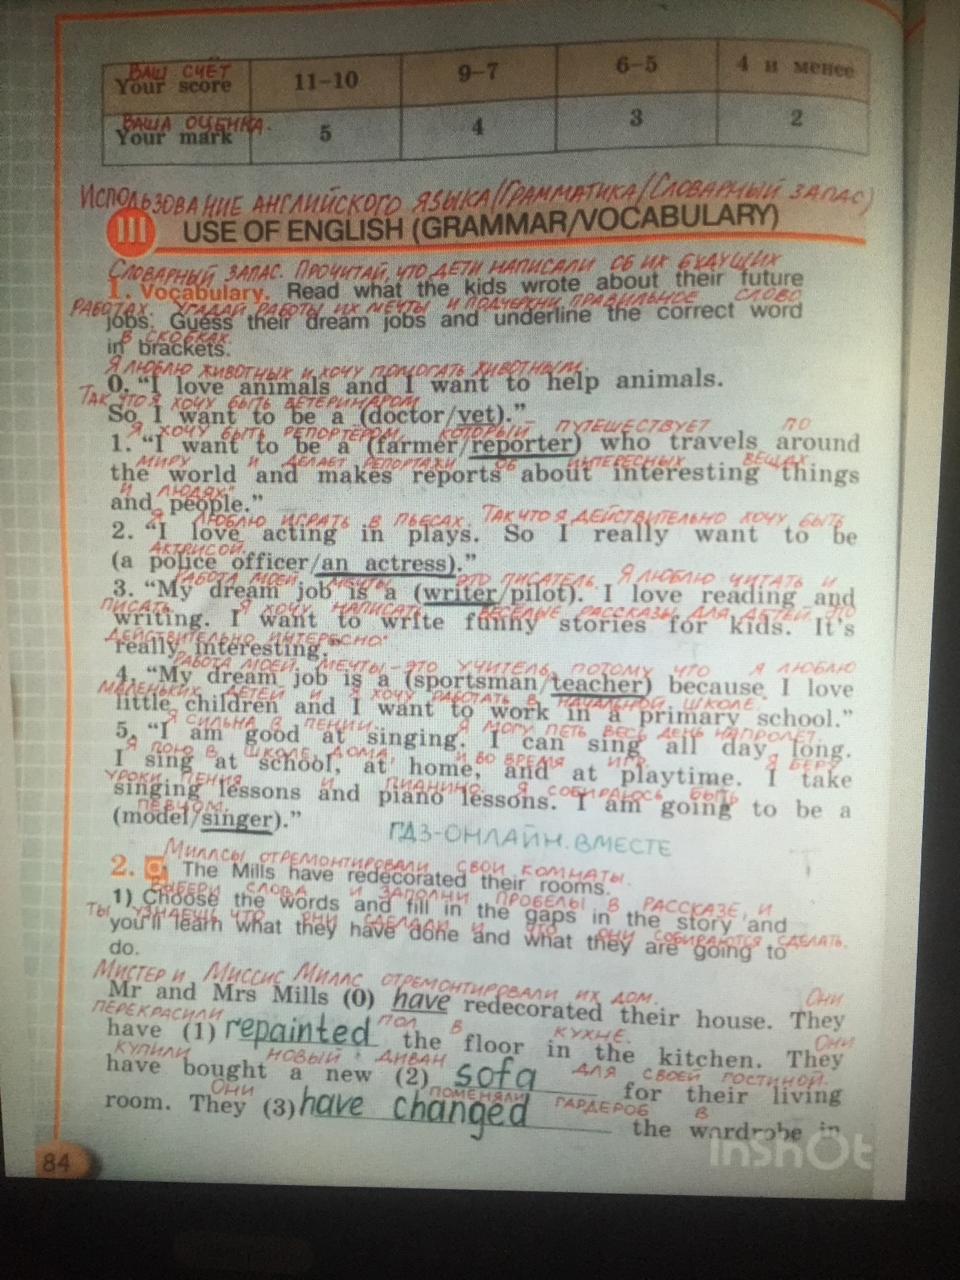 ВАШ СЧЁТ
Your score 11–10 9–7 6–5 4 и менее
ВАША ОЦЕНКА.
Your mark 5 4 3 2
ИСПОЛЬЗОВАНИЕ АНГЛИЙСКОГО ЯЗЫКА/ГРАММАТИКА/СЛОВАРНЫЙ ЗАПАС)
III USE OF ENGLISH (GRAMMAR/VOCABULARY)
СЛОВАРНЫЙ ЗАПАС. ПРОЧИТАЙ, ЧТО ДЕТИ НАПИСАЛИ ОБ ИХ БУДУЩИХ
1. Vocabulary. Read what the kids wrote about their future
РАБОТАХ. УГАДАЙ РАБОТЫ ИХ МЕЧТЫ И ПОДЧЕРКНИ ПРАВИЛЬНОЕ СЛОВО
jobs. Guess their dream jobs and underline the correct word
В СКОБКАХ.
in brackets.
Я ЛЮБЛЮ ЖИВОТНЫХ И ХОЧУ ПОМОГАТЬ ЖИВОТНЫМ.
0. “I love animals and I want to help animals.
ТАК ЧТО Я ХОЧУ БЫТЬ ВЕТЕРИНАРОМ
So I want to be a (doctor/vet).”
Я ХОЧУ БЫТЬ РЕПОРТЁРОМ, КОТОРЫЙ ПУТЕШЕСТВУЕТ ПО
1. “I want to be a (farmer/reporter) who travels around
МИРУ И ДЕЛАЕТ РЕПОРТАЖИ ОБ ИНТЕРЕСНЫХ ВЕЩАХ
the world and makes reports about interesting things
И ЛЮДЯХ”
and people.”
Я ЛЮБЛЮ ИГРАТЬ В ПЬЕСАХ. ТАК ЧТО Я ДЕЙСТВИТЕЛЬНО ХОЧУ БЫТЬ
2. “I love acting in plays. So I really want to be
АКТРИСОЙ.
(a police officer/an actress).”
РАБОТА МОЕЙ МЕЧТЫ ЭТО ПИСАТЕЛЬ. Я ЛЮБЛЮ ЧИТАТЬ И
3. “My dream job is a (writer/pilot). I love reading and
ПИСАТЬ. Я ХОЧУ НАПИСАТЬ ВЕСЁЛЫЕ РАССКАЗЫ ДЛЯ ДЕТЕЙ. ЭТО
writing. I want to write funny stories for kids. It’s
ДЕЙСТВИТЕЛЬНО ИНТЕРЕСНО"
really interesting.”
РАБОТА МОЕЙ МЕЧТЫ – ЭТО УЧИТЕЛЬ, ПОТОМУ ЧТО Я ЛЮБЛЮ
4. “My dream job is a (sportsman/teacher) because I love
МАЛЕНЬКИХ ДЕТЕЙ И Я ХОЧУ РАБОТАТЬ В НАЧАЛЬНОЙ ШКОЛЕ.
little children and I want to work in a primary school.”
Я СИЛЬНА В ПЕНИИ. Я МОГУ ПЕТЬ ВЕСЬ ДЕНЬ НАПРОЛЁТ.
5. “I am good at singing. I can sing all day long.
Я ПОЮ В ШКОЛЕ, ДОМА, И ВО ВРЕМЯ ИГР. Я БЕРУ
I sing at school, at home, and at playtime. I take
УРОКИ ПЕНИЯ И ПИАНИНО. Я СОБИРАЮСЬ БЫТЬ
singing lessons and piano lessons. I am going to be a
ПЕВЦОМ.
(model/singer).”
ГДЗ-ОНЛАЙН.ВМЕСТЕ
МИЛЛСЫ ОТРЕМОНТИРОВАЛИ СВОИ КОМНАТЫ.
2. a The Mills have redecorated their rooms.
ВЫБЕРИ СЛОВА И ЗАПОЛНИ ПРОБЕЛЫ В РАССКАЗЕ, И
1) Choose the words and fill in the gaps in the story and
ТЫ УЗНАЕШЬ ЧТО ОНИ СДЕЛАЛИ И ЧТО ОНИ СОБИРАЮТСЯ СДЕЛАТЬ.
you’ll learn what they have done and what they are going to
do.
МИСТЕР И МИССИС МИЛЛС ОТРЕМОНТИРОВАЛИ ИХ ДОМ. ОНИ
Mr and Mrs Mills (0) have redecorated their house. They
ПЕРЕКРАСИЛИ ПОЛ В КУХНЕ. ОНИ
have (1) repainted the floor in the kitchen. They
КУПИЛИ НОВЫЙ ДИВАН ДЛЯ СВОЕЙ ГОСТИНОЙ.
have bought a new (2) sofa for their living
ОНИ ПОМЕНЯЛИ ГАРДЕРОБ В
room. They (3) have changed the wardrobe in
InShOt
84